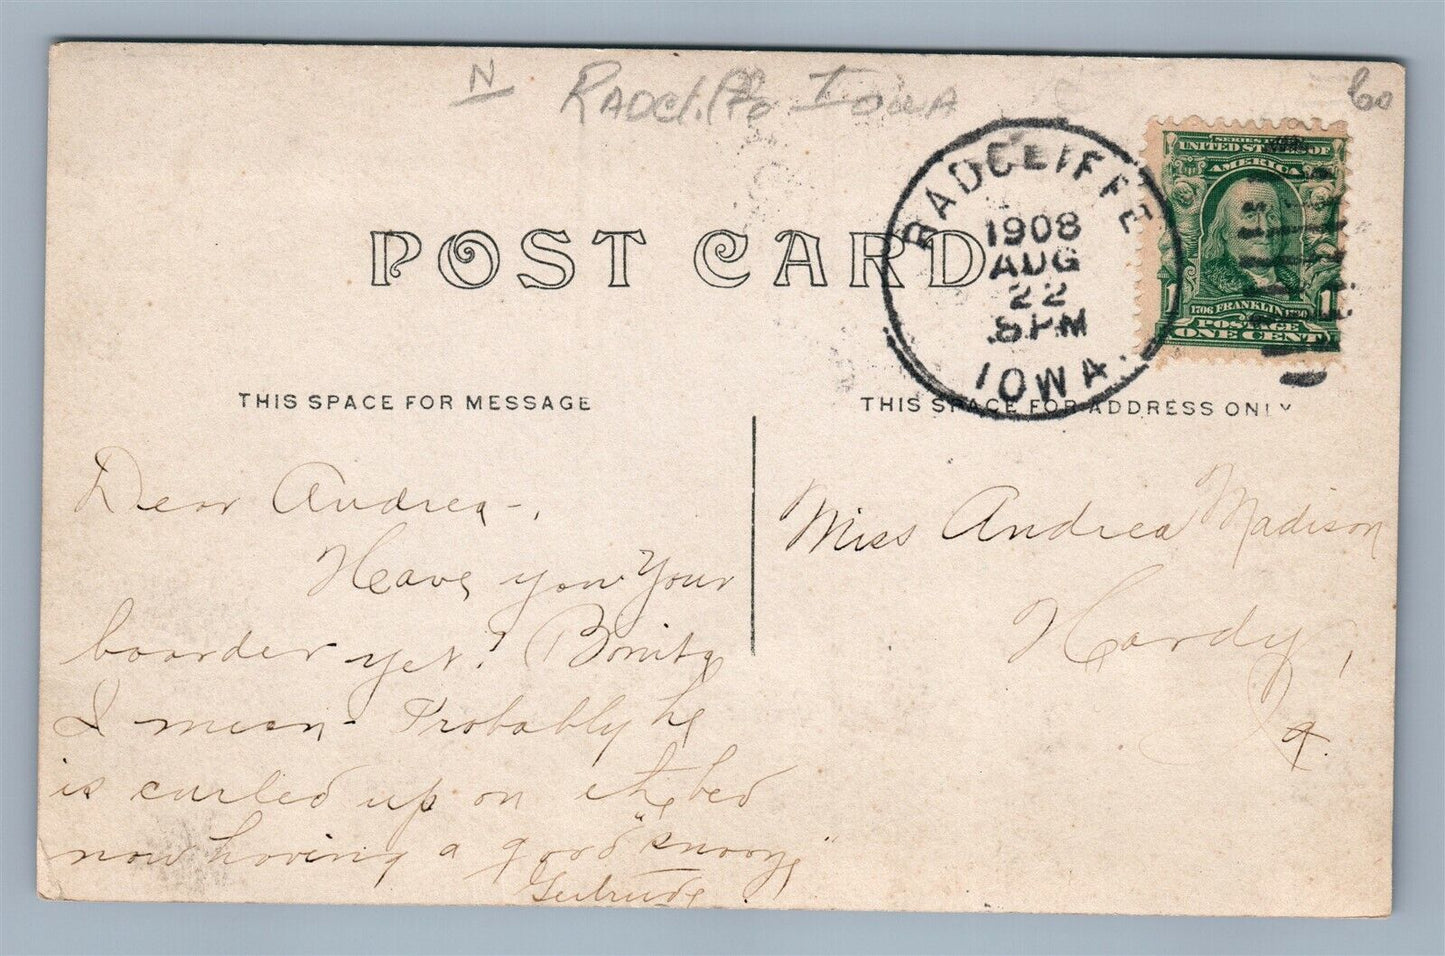 N Radcliffe Iowa 60
POST CARD
RADCLIFFE
1908
AUG
22
8 PM
IOWA.
UNITED STATES OF
AMERICA
1 1
1706 FRANKLIN 1790
POSTAGE
ONE CENT
THIS SPACE FOR MESSAGE
THIS SPACE FOR ADDRESS ONLY
Dear Andrea-,
Have you Your
boarder yet? Bonita
I mean- Probably he
is curled up on the bed
now having a good "snooze"
Gertrude
Miss Andrea Madison
Hardy,
Ia.